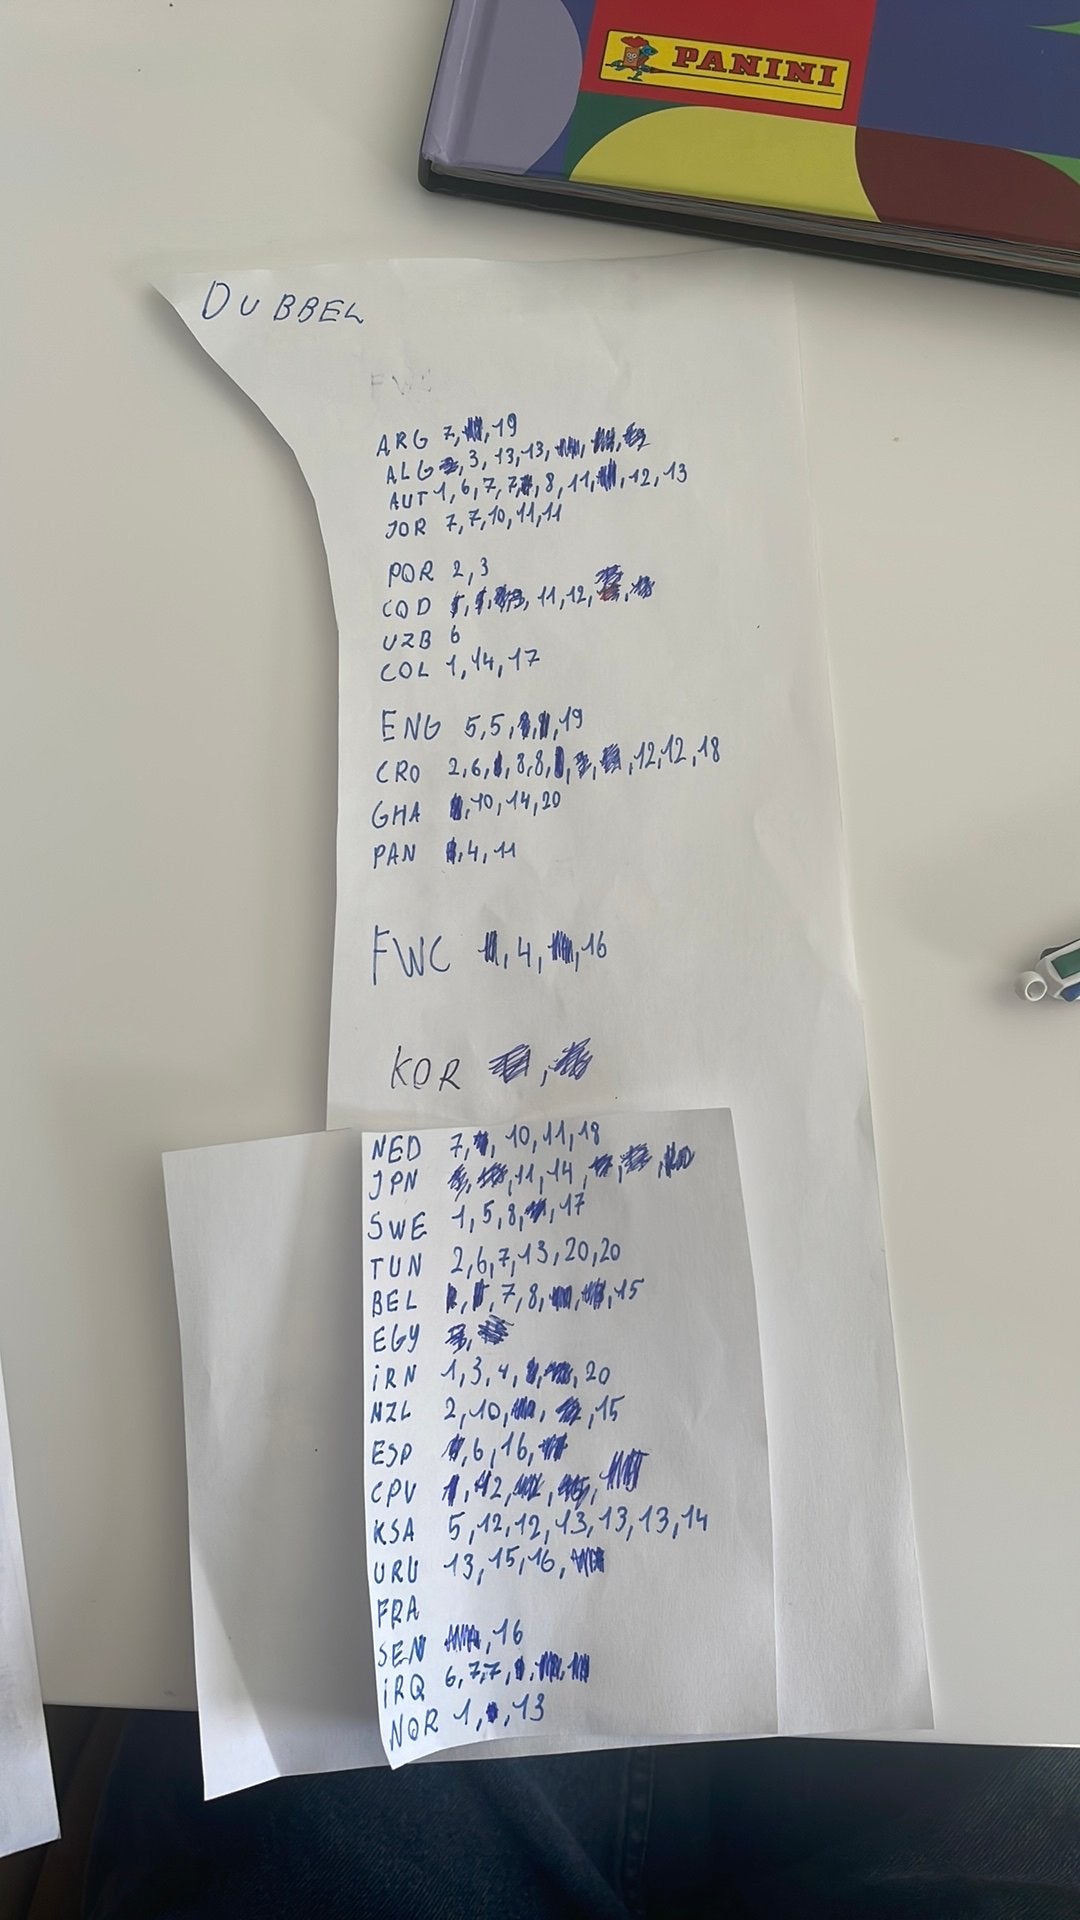 PANINI
DUBBEL
FWC
ARG 7, 19
ALG 3, 13, 13
AUT 1, 6, 7, 7, 8, 11, 12, 13
JOR 7, 7, 10, 11, 11
POR 2, 3
COD 11, 12
UZB 6
COL 1, 14, 17
ENG 5, 5, 19
CRO 2, 6, 8, 8, 12, 12, 18
GHA 10, 14, 20
PAN 4, 11
FWC 4, 16
KOR
NED 7, 10, 11, 18
JPN 11, 14
SWE 1, 5, 8, 17
TUN 2, 6, 7, 13, 20, 20
BEL 7, 8, 15
EGY
iRN 1, 3, 4, 20
NZL 2, 10, 15
ESP 6, 16
CPV 12
KSA 5, 12, 12, 13, 13, 13, 14
URU 13, 15, 16
FRA
SEN 16
iRQ 6, 7, 7
NOR 1, 13